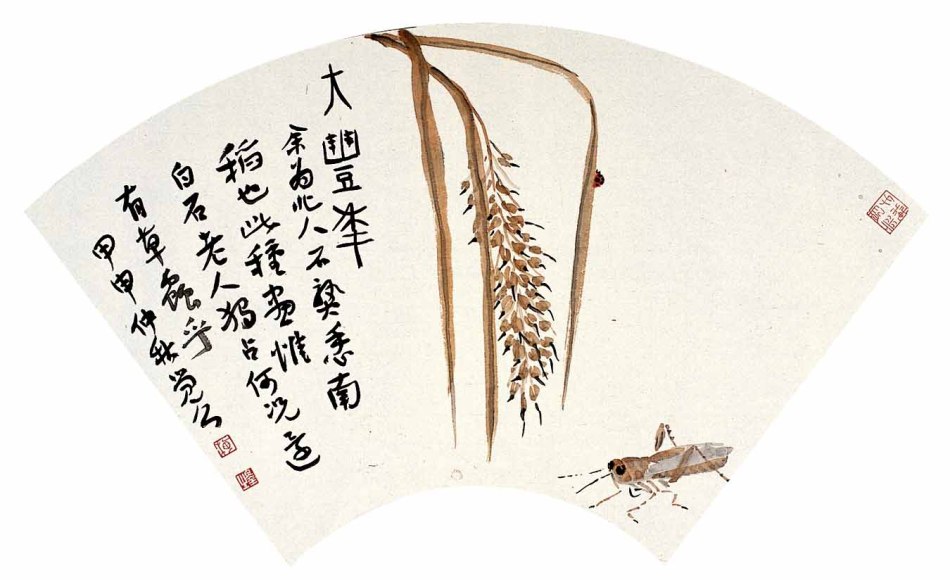 大豐年
余为北人不熟悉南
稻也此種畫惟
白石老人獨占何况還
有草蟲乎
甲申仲秋觉公